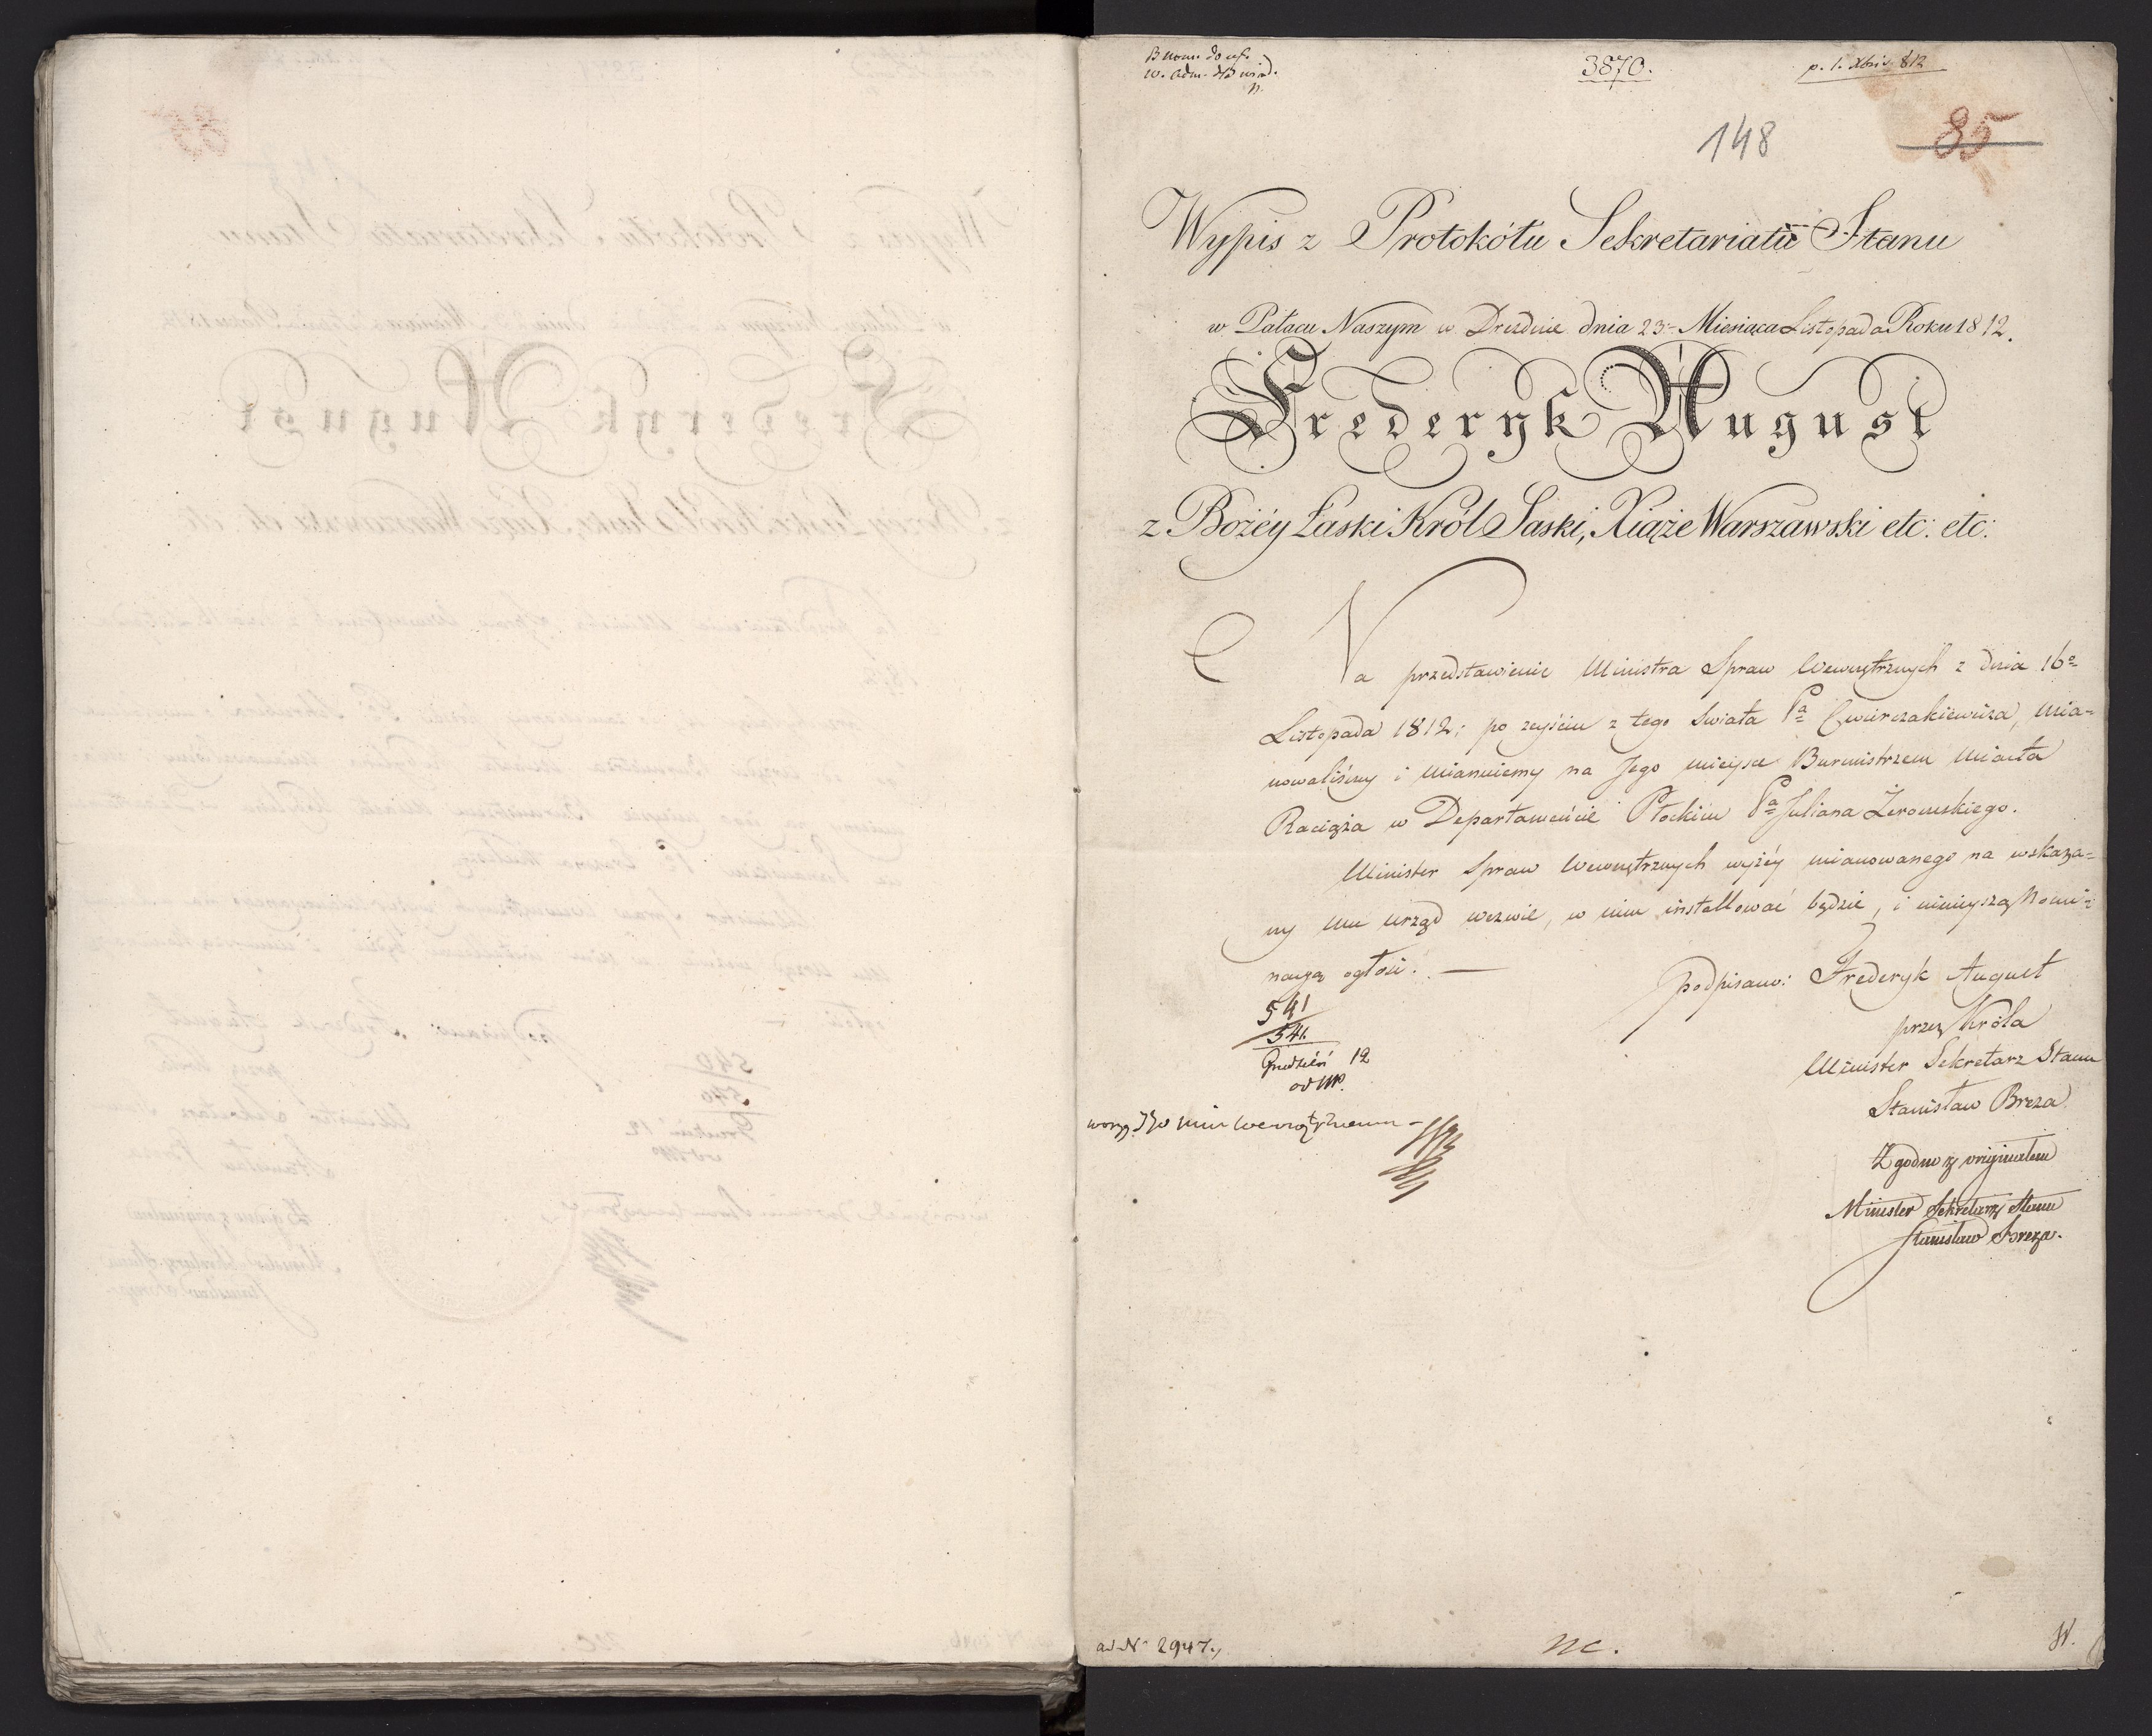 3870.
p. 1. Xbris 812
148
85
Wypis z Protokółu Sekretariatu Stanu
w Pałacu Naszym w Dreźdnie dnia 23. Miesiąca Listopada Roku 1812.
Frederyk August
z Bożéy Łaski Król Saski, Xiąże Warszawski etc: etc:
Na przedstawienie Ministra Spraw Wewnętrznych z dnia 16o
Listopada 1812; po zeyściu z tego Świata Pa Cwierczakiewicza, mia=
nowaliśmy i mianuiemy na Jego mieysce Burmistrzem Miasta
Raciąża w Departamencie Płockim Pa Juliana Żerowskiego.
Minister Spraw Wewnętrznych wyżéy mianowanego na wskaza=
ny mu urząd wezwie, w nim installować będzie, i ninieyszą Nomi=
nacyą ogłosi. —
podpisano: Frederyk August
przez Króla
Minister Sekretarz Stanu
Stanisław Breza
Zgodno z oryginałem
Minister Sekretarz Stanu
Stanisław Breza.
541
541.
Grudzień 12
ad N 2947.